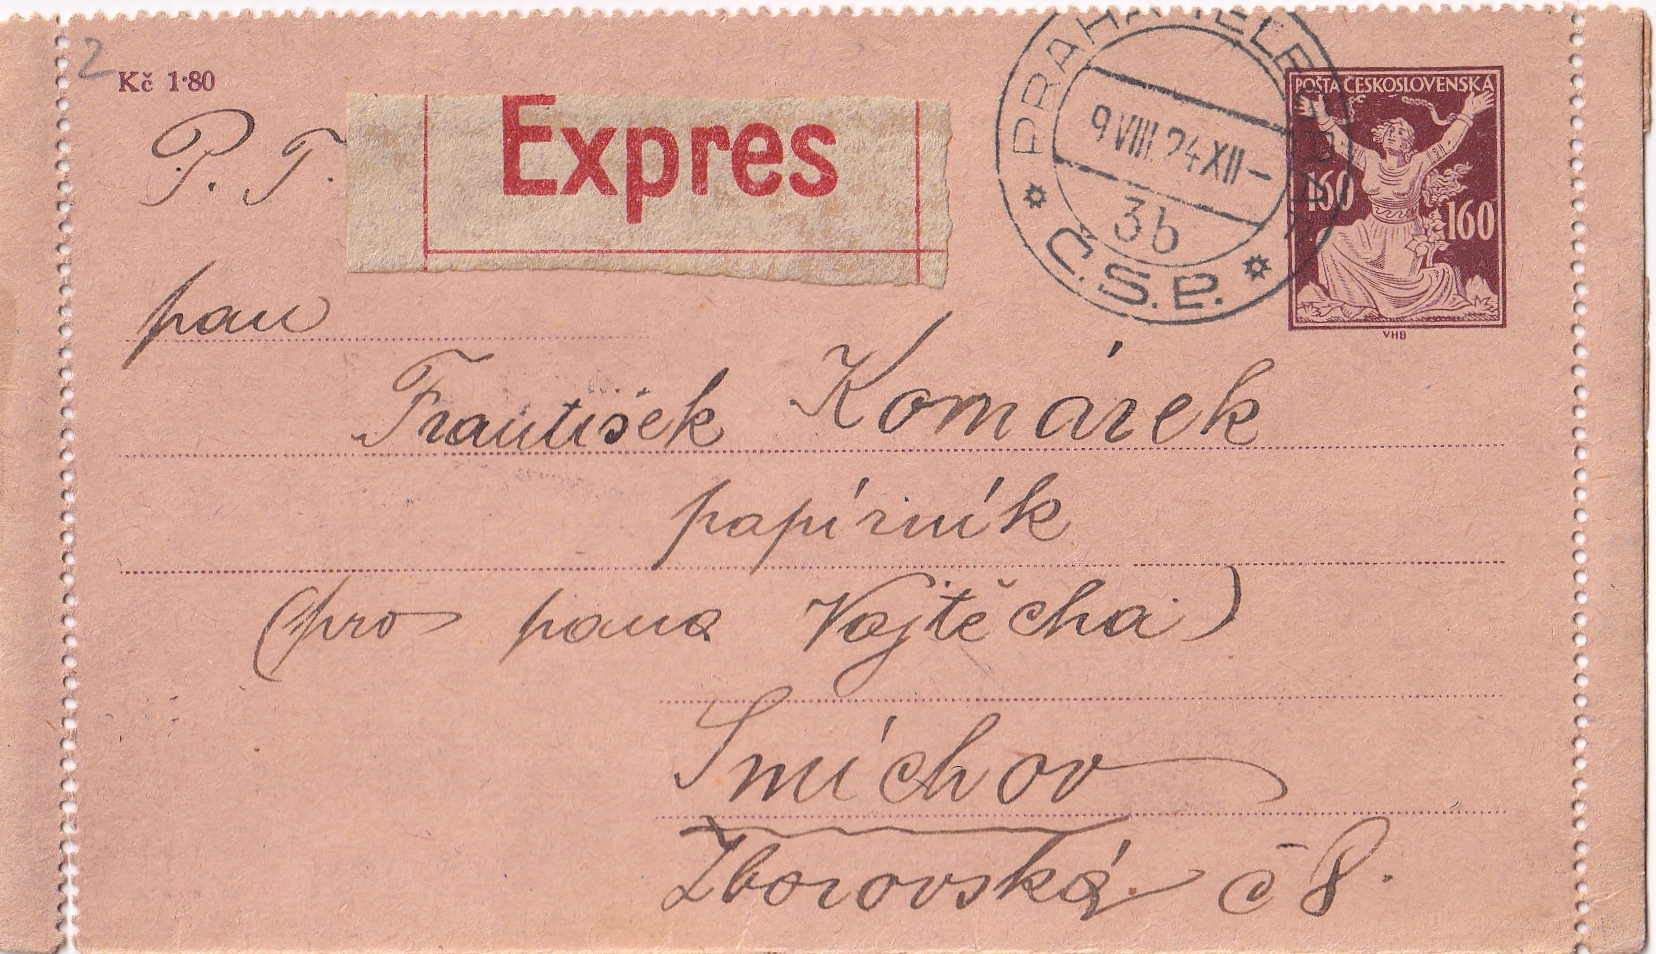 2
Kč 1·80
P. T.
Expres
PRAHA TELE
9 VIII. 24 XII-
3b
Č.S.P.
POŠTA ČESKOSLOVENSKÁ
160
160
VHB
pan
František Komárek
papírník
(pro pana Vojtěcha)
Smíchov
Zborovská č 8.